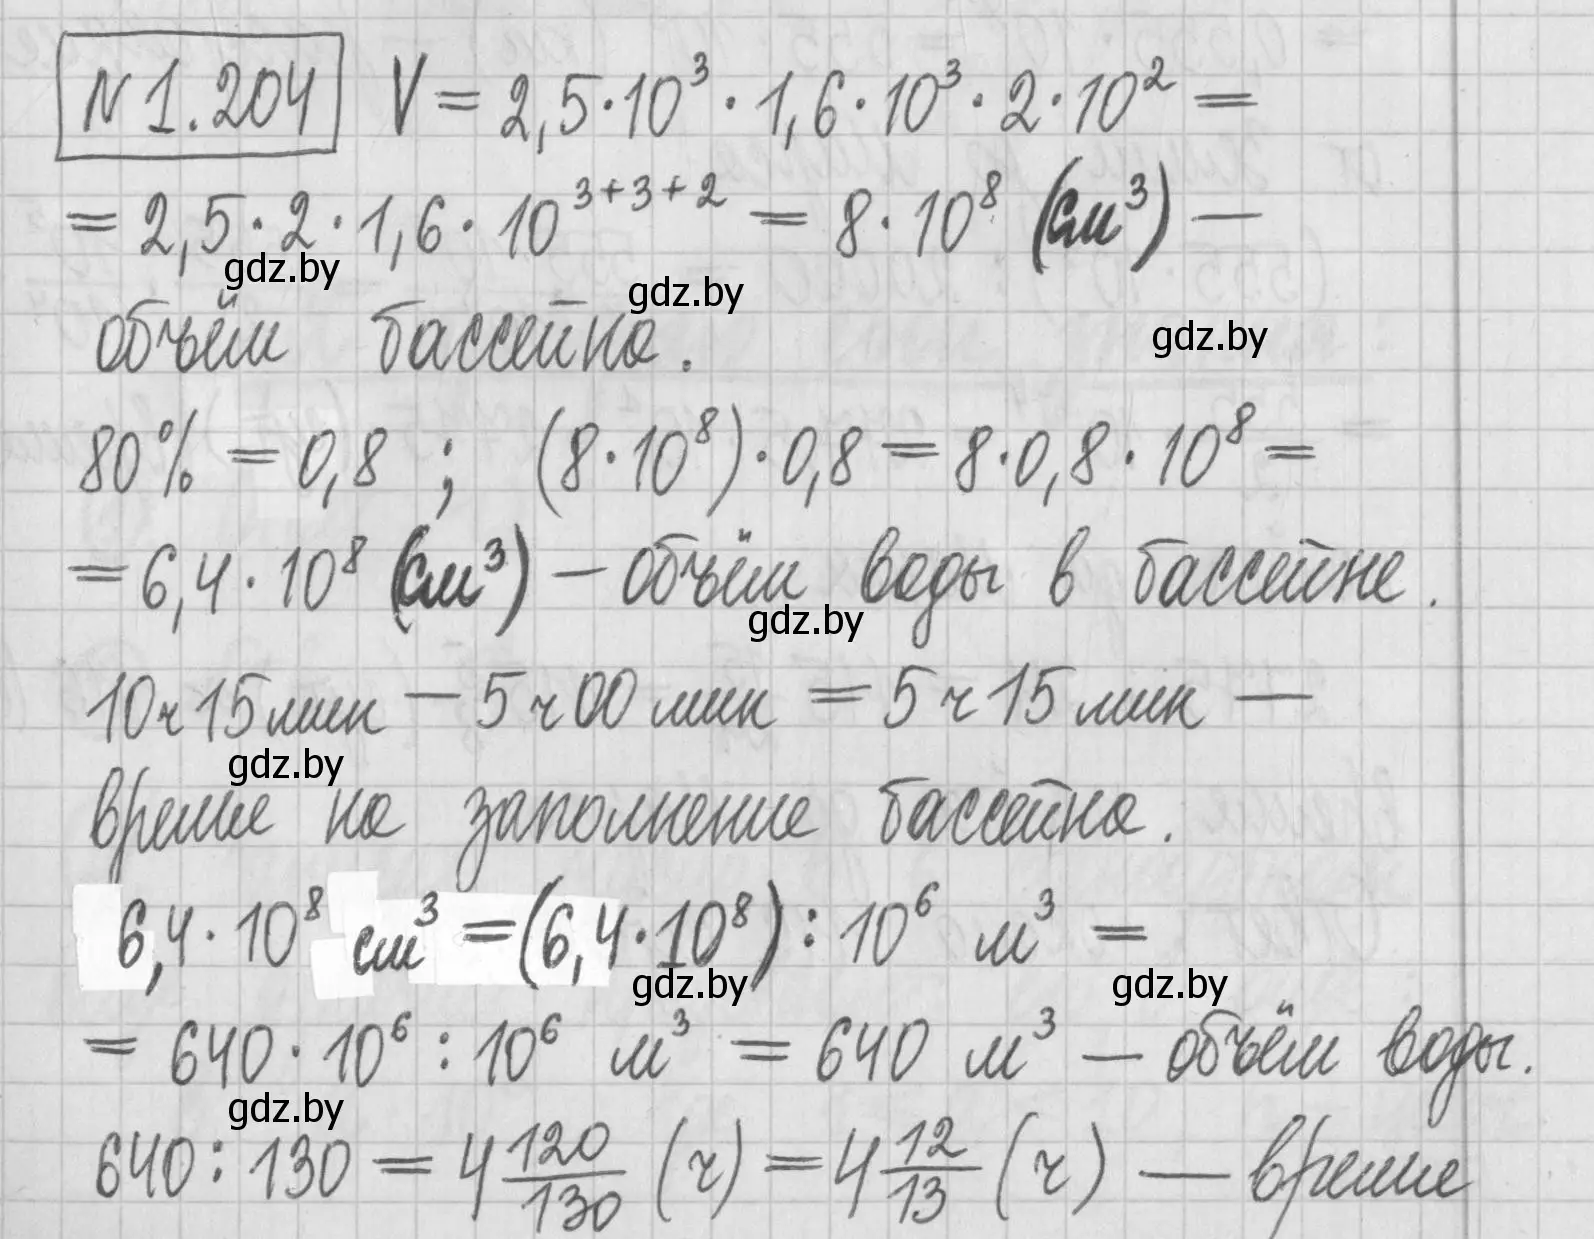 N 1.204 V = 2,5·10³ · 1,6·10³ · 2·10² =
= 2,5·2·1,6·10³⁺³⁺² = 8·10⁸ (см³) —
gdz.by
gdz.by
объём бассейна.
gdz.by
80% = 0,8 ; (8·10⁸)·0,8 = 8·0,8·10⁸ =
= 6,4·10⁸ (см³) – объём воды в бассейне.
gdz.by
10ч15мин – 5ч00мин = 5ч15мин —
gdz.by
время на заполнение бассейна.
6,4·10⁸ см³ = (6,4·10⁸) : 10⁶ м³ =
gdz.by
gdz.by
= 640·10⁶ : 10⁶ м³ = 640 м³ — объём воды.
gdz.by
640 : 130 = 4 120/130 (ч) = 4 12/13 (ч) — время